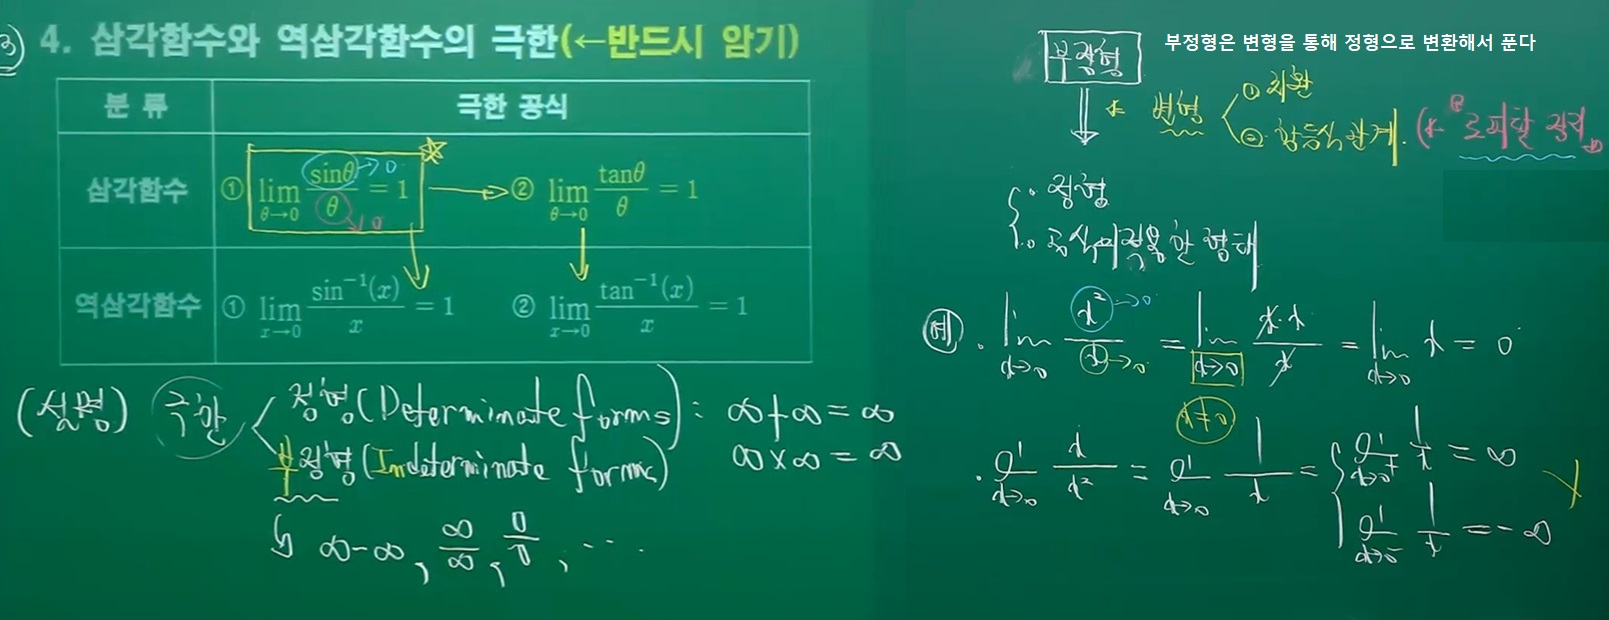 ③ 4. 삼각함수와 역삼각함수의 극한(←반드시 암기)
분 류 극한 공식
삼각함수 ① lim θ→0 sinθ/θ = 1 → ② lim θ→0 tanθ/θ = 1
→0
→0
역삼각함수 ① lim x→0 sin⁻¹(x)/x = 1 ② lim x→0 tan⁻¹(x)/x = 1
(설명) 극한 < 정형(Determinate forms) : ∞+∞ = ∞
부정형(Indeterminate forms) ∞×∞ = ∞
↳ ∞-∞, ∞/∞, 0/0, ...
부정형 부정형은 변형을 통해 정형으로 변환해서 푼다
* 변형 < ① 치환
② 항등식 관계. (* 로피탈 정리)
· 정형
· 공식이 적용한 형태
예 · lim x→0 x²/x = lim x→0 x·x/x = lim x→0 x = 0
→0
→0
x≠0
· lim x→0 x/x² = lim x→0 1/x = { lim x→0⁺ 1/x = ∞
lim x→0⁻ 1/x = -∞